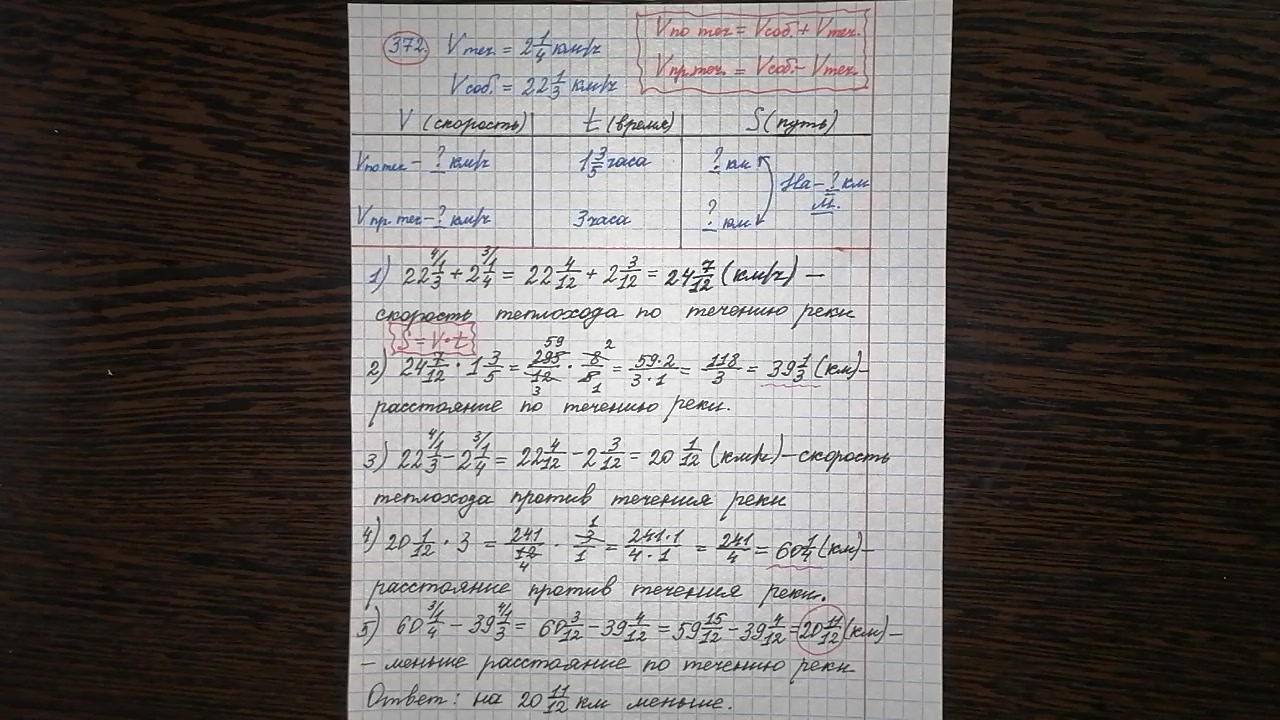 372. Vтеч. = 2 1/4 км/ч
Vсоб. = 22 1/3 км/ч
Vпо теч. = Vсоб. + Vтеч.
Vпр. теч. = Vсоб. - Vтеч.
V (скорость) t (время) S (путь)
Vпо теч - ? км/ч 1 3/5 часа ? км
На - ? км
М.
Vпр. теч - ? км/ч 3 часа ? км
1) 22 1/3 + 2 1/4 = 22 4/12 + 2 3/12 = 24 7/12 (км/ч) —
скорость теплохода по течению реки
S = V · t
2) 24 7/12 · 1 3/5 = 295/12 · 8/5 = 59·2/3·1 = 118/3 = 39 1/3 (км) –
расстояние по течению реки.
3) 22 1/3 - 2 1/4 = 22 4/12 - 2 3/12 = 20 1/12 (км/ч) – скорость
теплохода против течения реки
4) 20 1/12 · 3 = 241/12 · 3/1 = 241·1/4·1 = 241/4 = 60 1/4 (км) –
расстояние против течения реки.
5) 60 1/4 - 39 1/3 = 60 3/12 - 39 4/12 = 59 15/12 - 39 4/12 = 20 11/12 (км) –
- меньше расстояние по течению реки
Ответ: на 20 11/12 км меньше.